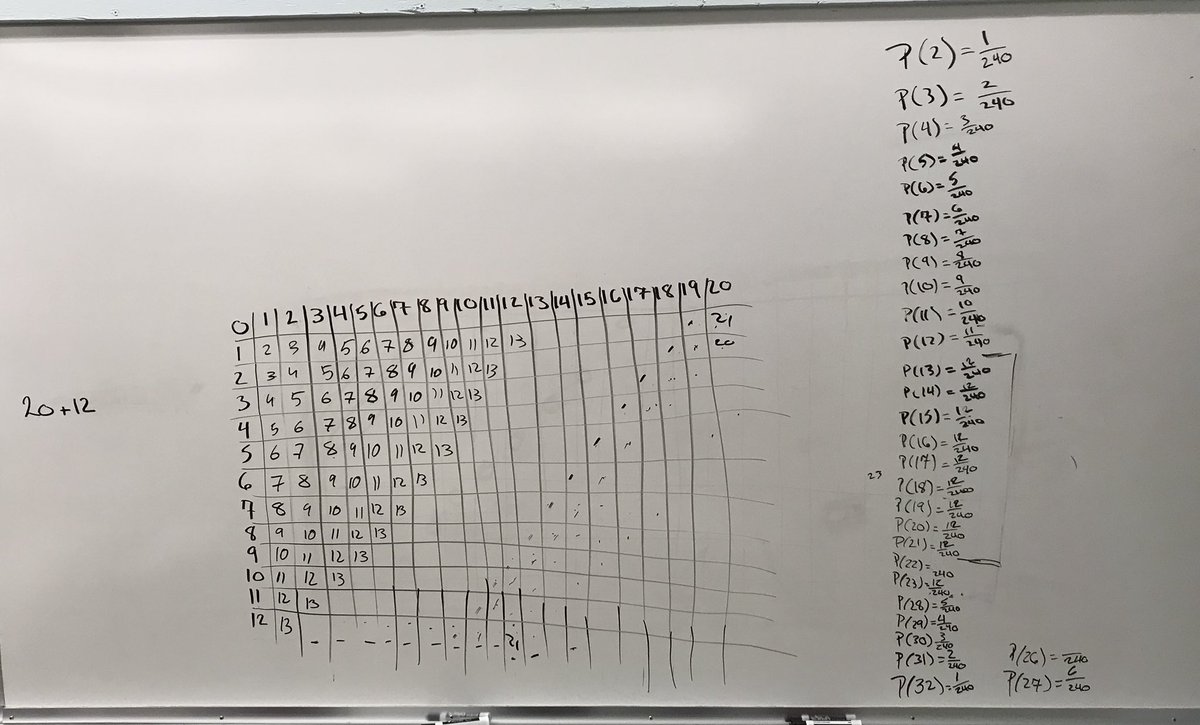 20+12
0 1 2 3 4 5 6 7 8 9 10 11 12 13 14 15 16 17 18 19 20
1 2 3 4 5 6 7 8 9 10 11 12 13 21
2 3 4 5 6 7 8 9 10 11 12 13 20
3 4 5 6 7 8 9 10 11 12 13
4 5 6 7 8 9 10 11 12 13
5 6 7 8 9 10 11 12 13
6 7 8 9 10 11 12 13
7 8 9 10 11 12 13
8 9 10 11 12 13
9 10 11 12 13
10 11 12 13
11 12 13
12 13 21
P(2)=1/240
P(3)=2/240
P(4)=3/240
P(5)=4/240
P(6)=5/240
P(7)=6/240
P(8)=7/240
P(9)=8/240
P(10)=9/240
P(11)=10/240
P(12)=11/240
P(13)=12/240
P(14)=12/240
P(15)=12/240
P(16)=12/240
P(17)=12/240
23
P(18)=12/240
P(19)=12/240
P(20)=12/240
P(21)=12/240
P(22)= /240
P(23)=12/240
P(28)=5/240
P(29)=4/240
P(30)=3/240
P(31)=2/240
P(32)=1/240
P(26)= /240
P(27)=6/240